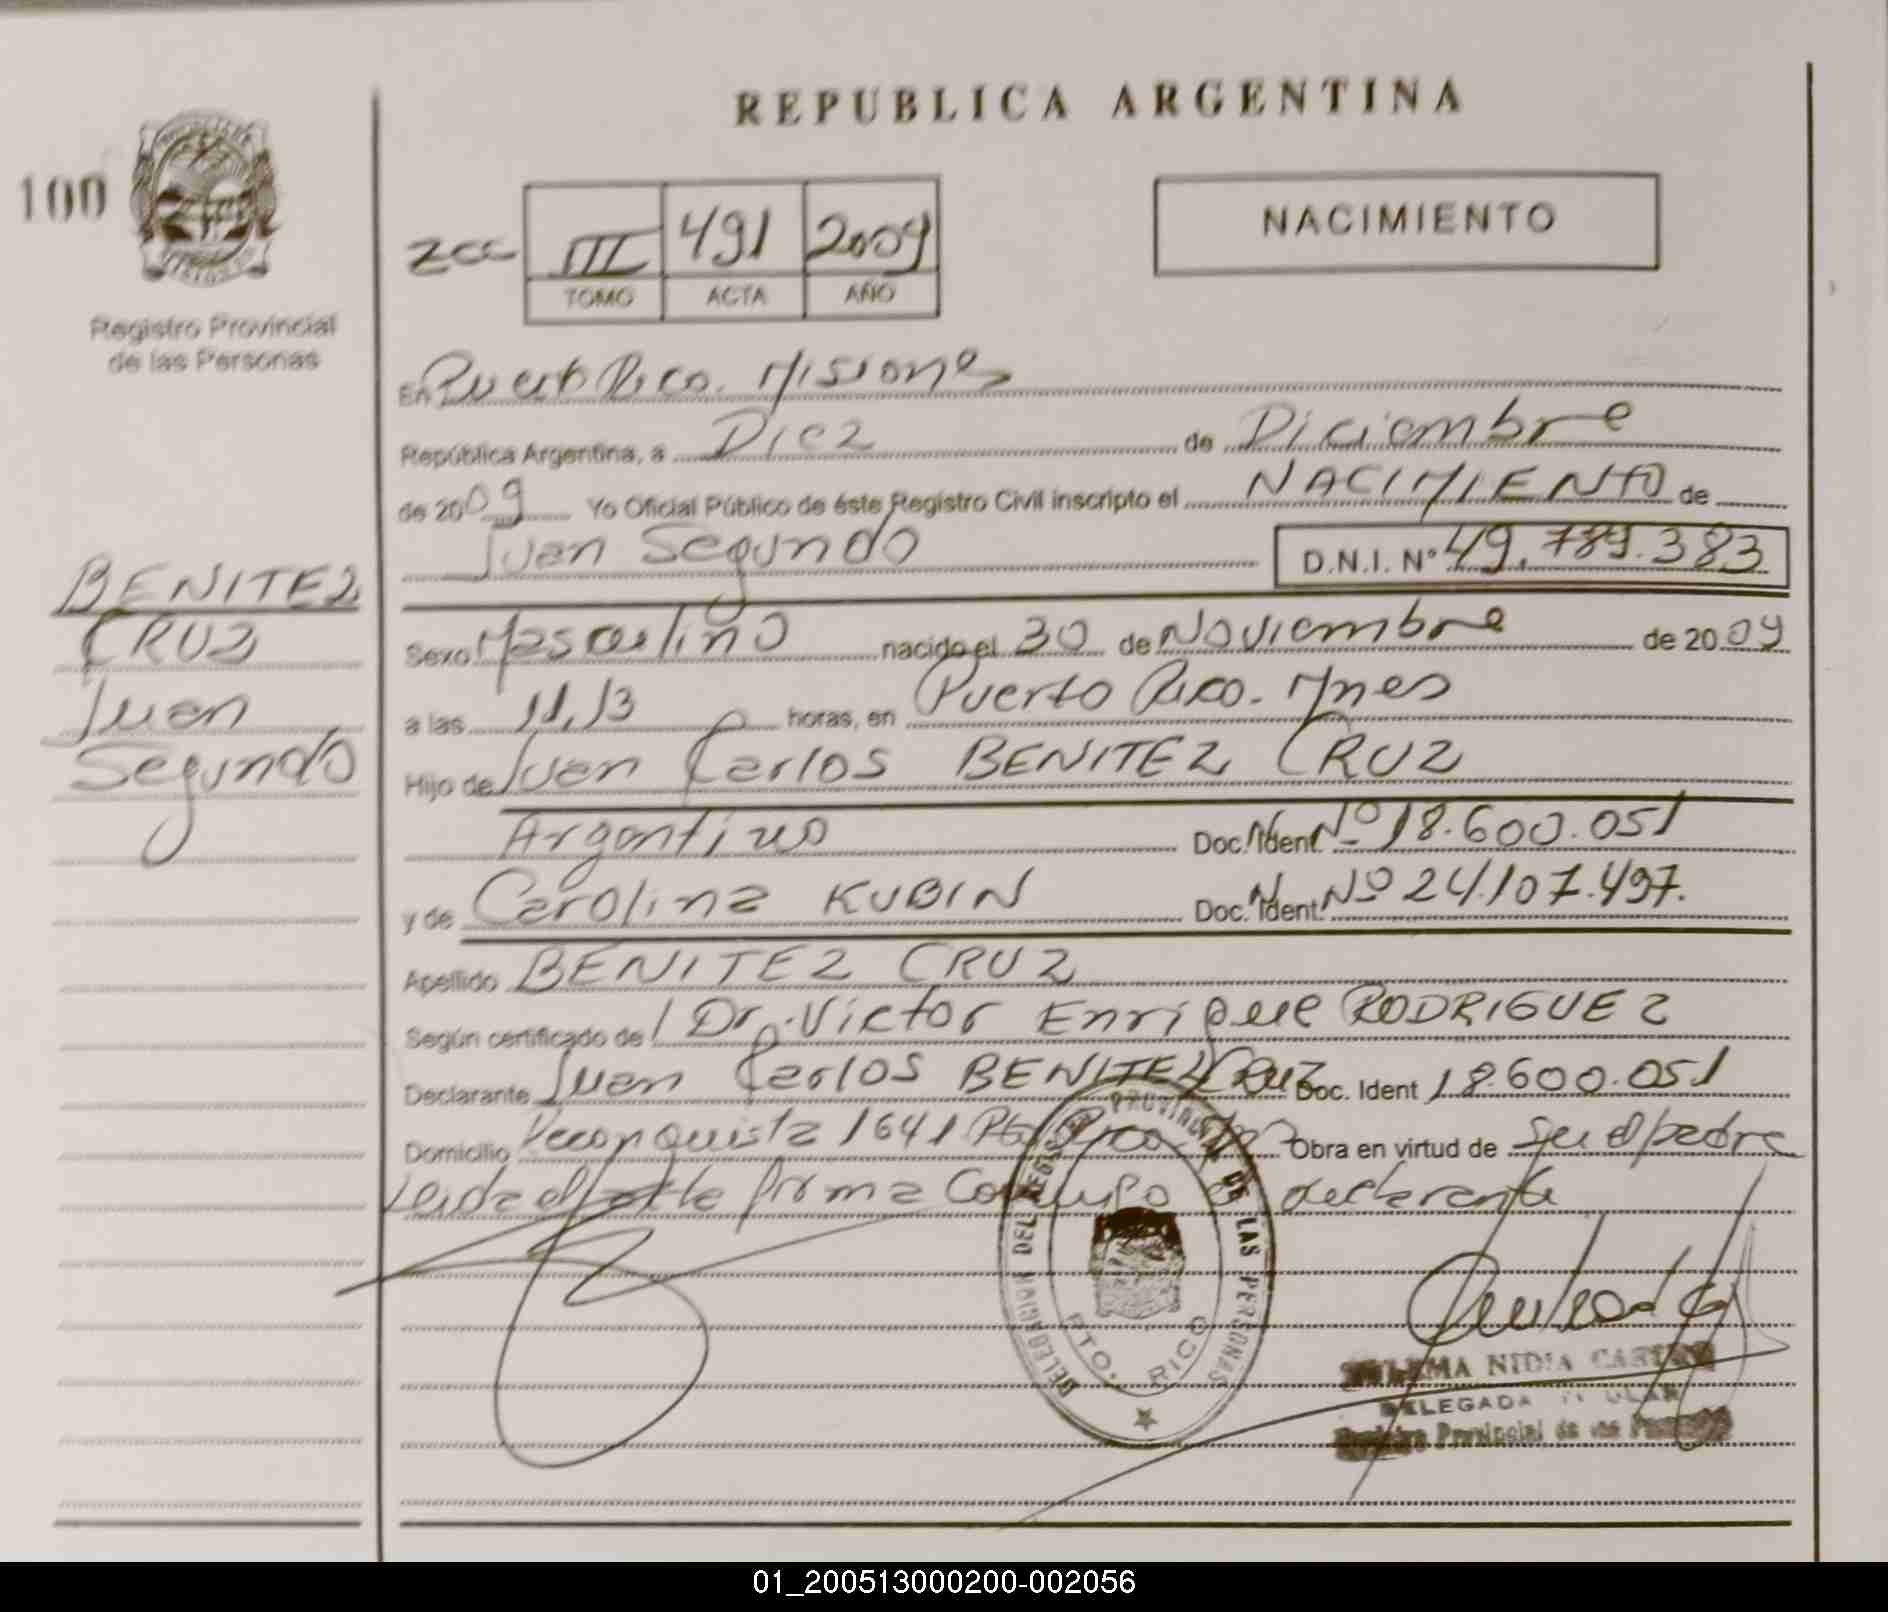 REPUBLICA ARGENTINA
100
Registro Provincial
de las Personas
NACIMIENTO
III 491 2009
TOMO ACTA AÑO
En Puerto Rico. Misiones
República Argentina, a Diez de Diciembre
de 2009 Yo Oficial Público de éste Registro Civil inscripto el NACIMIENTO de
Juan Segundo D.N.I. Nº 49.789.383
BENITEZ
CRUZ
Juan
Segundo
Sexo Masculino nacido el 30 de Noviembre de 2009
a las 11,13 horas, en Puerto Rico. Mnes
Hijo de Juan Carlos BENITEZ CRUZ
Argentino Doc. Ident. Nº 18.600.051
y de Carolina KUBIN Doc. Ident. Nº 24.107.497.
Apellido BENITEZ CRUZ
Según certificado de Dr. Victor Enrique RODRIGUEZ
Declarante Juan Carlos BENITEZ CRUZ Doc. Ident 18.600.051
Domicilio Reconquista 1641 Pto Rico Obra en virtud de Ser el padre
Leida el acta firma conmigo el declarante
DELEGACION DEL REGISTRO PROVINCIAL DE LAS PERSONAS
PTO. RICO
NIDIA
DELEGADA TITULAR
Registro Provincial de las Personas
01_200513000200-002056